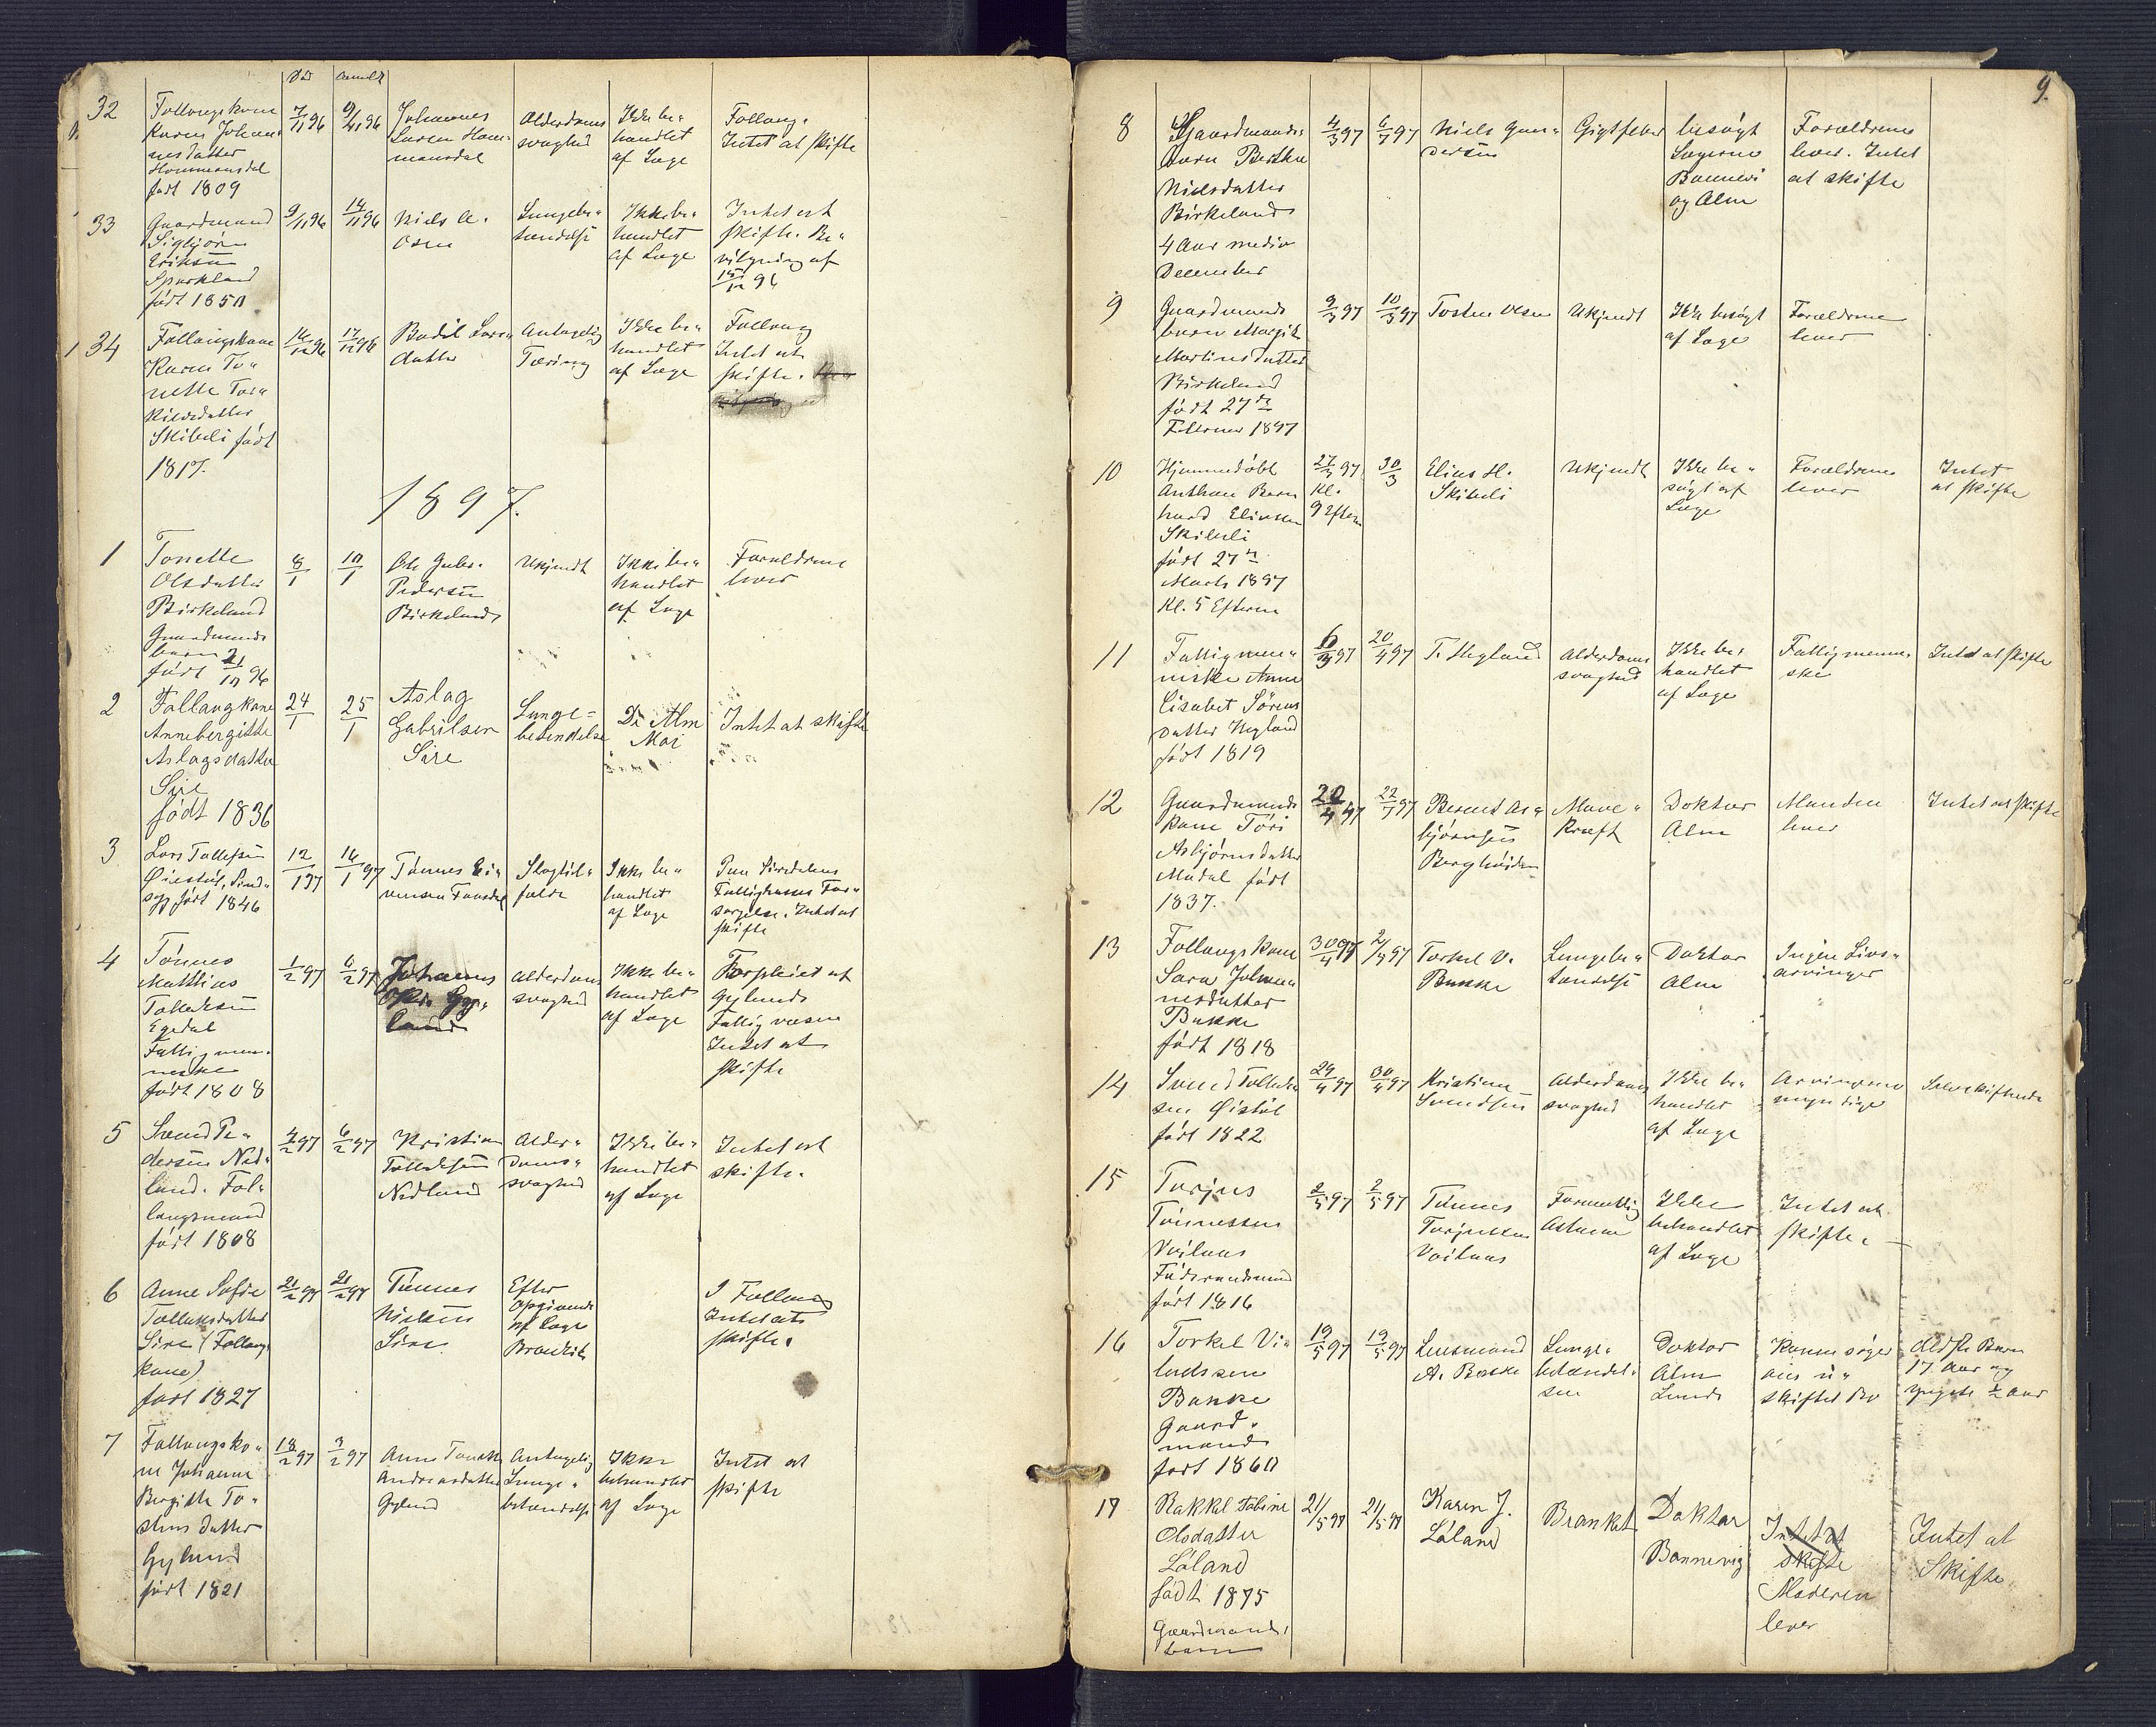 Død Anmeldt
32
Follaugskone
Karen Johan-
nesdatter
Hommensdal
født 1809
7/11 96
9/11 96
Johannes
Larsen Hom-
mensdal
Alderdoms
svaghed
Ikke be-
handlet
af Læge
Follaug.
Intet at skifte
33
Gaardmand
Sigbjørn
Eriksen
Sparkland
født 1850
9/11 96
14/11 96
Niels A.
Osen
Lungebe-
tændelse
Ikke be-
handlet
af Læge
Intet at
skifte. Be-
vilgning af
15/12 96
34
Follaugskone
Karen To-
nette Tor-
kildsdatter
Skibeli født
1817.
14/12 96
17/12 96
Bodil Lars-
datter
Antagelig
Tæring
Ikke be-
handlet
af Læge
Follaug
Intet at
skifte.
1897.
1
Tonette
Olsdatter
Birkeland
Gaardmands
barn
født 21/10 96
8/1
10/1
Ole Gabr.
Pedersen
Birkeland
Ukjendt
Ikke be-
handlet
af Læge
Forældrene
lever
2
Follaugkone
Annebergitte
Aslagsdatter
Sire
født 1836
24/1
25/1
Aslag
Gabrilsen
Sire
Lunge=
betendelse
Dr Alm
Moi
Intet at skifte
3
Lars Tollefsen
Øiestøl, Sind-
syg født 1846
12/1 97
16/1 97
Tønnes Ei-
vensen Fonsdal
Slagtil-
fælde
Ikke be-
handlet
af Læge
Paa Siredalens
Fattigkasses For-
sørgelse. Intet at
skifte
4
Tønnes
Mathias
Tollefsen
Egedal
Fattigmen-
neske
født 1808
1/2 97
6/2 97
Johannes
Gyl-
land
Alderdoms
svaghed
Ikke be-
handlet
af Læge
Forpleiet af
Gylands
Fattigvæsen
Intet at
skifte
5
Svend Pe-
dersen Ned-
land. Fol-
laugsmand
født 1808
4/2 97
6/2 97
Kristian
Tollefsen
Nedland
Alder-
doms-
svaghed
Ikke be-
handlet
af Læge
Intet at
skifte.
6
Anne Sofie
Tolleksdatter
Sire (Follaugs
kone)
født 1827
21/2 97
Tønnes
Nielsen
Sire
Efter
Opgivende
af Læge
Bronkit
I Follaug
Intet at
skifte.
7
Follaugsko-
ne Johanne
Bergitte To-
stensdatter
Gyland
født 1821
18/2 97
3/2 97
Anne Tonette
Andreasdatter
Gyland
Antagelig
Lunge-
betændelse
Ikke
behandlet
af Læge
Intet at
skifte
9.
8
Gaardmands-
barn Berthe
Nielsdatter
Birkeland
4 Aar medio
December
4/3 97
6/3 97
Niels Gun-
dersen
Gigtfeber
besøgt
Lægerne
Bonnevi
og Alm
Forældrene
lever. Intet
at skifte
9
Gaardmands
barn Margit
Martinsdatter
Birkeland
født 27de
Februar 1897
9/3 97
10/3 97
Tosten Olsen
Ukjendt
Ikke besøgt
af Læge
Forældrene
lever
10
Hjemmedøbt
Anthon Bern
hard Eliassen
Skibeli
født 27de
Marts 1897
Kl. 5 Efterm
27/3 97
Kl.
9 Efterm
30/3
Elias H.
Skibeli
Ukjendt
Ikke be-
søgt af
Læge
Forældrene
lever
Intet
at skifte
11
Fattigmen-
neske Anne
Lisabet Sørens
datter Hegland
født 1819
6/3 97
20/4 97
T. Hegland
Alderdoms
svaghed
Ikke be-
handlet
af Læge
Fattigmenne-
ske
Intet at skifte
12
Gaardmands
kone Tøri
Asbjørnsdatter
Mødal født
1837.
20/4 97
22/4 97
Berent As-
bjørnsen
Berghøiden
Mave-
kræft
Doktor
Alm
Manden
lever
Intet at skifte
13
Follaugskone
Sara Johan-
nesdatter
Bakke
født 1818
30/4 97
2/4 97
Torkel V.
Bakke
Lungebe-
tændelse
Doktor
Alm
Ingen Livs-
arvinger
14
Svend Tolleks
sen Øistøl
født 1822
29/4 97
30/4 97
Kristian
Svendsen
Alderdoms
svaghed
Ikke be-
handlet
af Læge
Arvingerne
myndige
Selvskiftende
15
Torjus
Tønnessen
Voilaas
Føderaadsmand
født 1816
2/5 97
2/5 97
Tønnes
Torjussen
Voilaas
Formentlig
Asthma
Ikke
behandlet
af Læge
Intet at
skifte.
16
Torkel Vi-
ladssen
Bakke
Gaard-
mand
født 1860
19/5 97
19/5 97
Lensmand
A. Bakke
Lunge-
betændel-
sen
Doktor
Alm
Lunde
Konen søger
om u-
skiftet Bo
Ældste Barn
17 Aar og
yngste 1/2 Aar
17
Rakkel Tobine
Olsdatter
Løland
født 1875
Gaardmands
barn
21/5 97
21/5 97
Karen J.
Løland
Brankit
Doktor
Bonnevig
Intet at
skifte
Moderen
lever
Intet at
Skifte